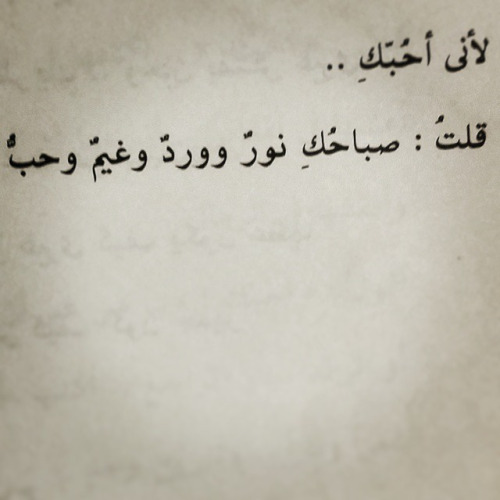 لأنى أحُبّكِ ..
قلتُ : صباحُكِ نورٌ ووردٌ وغيمٌ وحبٌّ